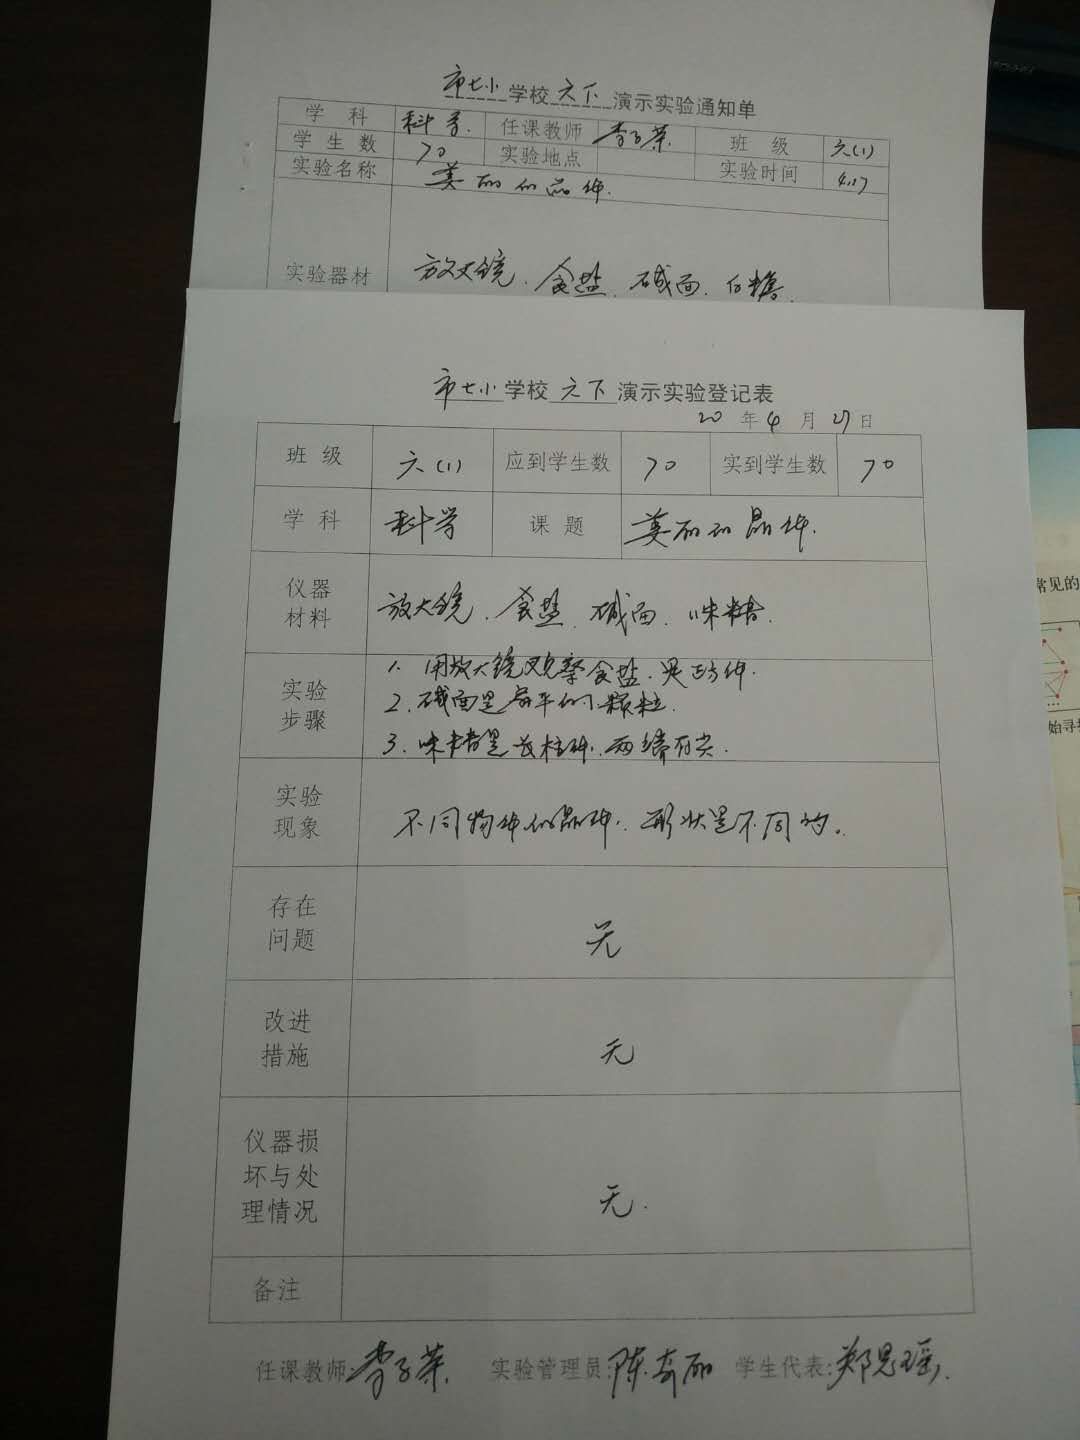 市七小学校六下演示实验通知单
学 科 科学. 任课教师 李子荣. 班 级 六(1)
学 生 数 70 实验地点 实验时间 4.17
实验名称 美丽的晶体.
实验器材 放大镜. 食盐. 碱面. 白糖.
市七小学校六下演示实验登记表
20 年 4 月 27 日
班 级 六(1) 应到学生数 70 实到学生数 70
学 科 科学 课 题 美丽的晶体.
仪器
材料
放大镜. 食盐. 碱面. 味精.
实验
步骤
1. 用放大镜观察食盐. 是正方体.
2. 碱面是扁平的小颗粒.
3. 味精是长柱体. 两端有尖.
实验
现象
不同物体的晶体. 形状是不同的。
存在
问题
无
改进
措施
无
仪器损
坏与处
理情况
无.
备注
任课教师:李子荣. 实验管理员:陈奇丽 学生代表:郑思瑶.
常见的
始寻